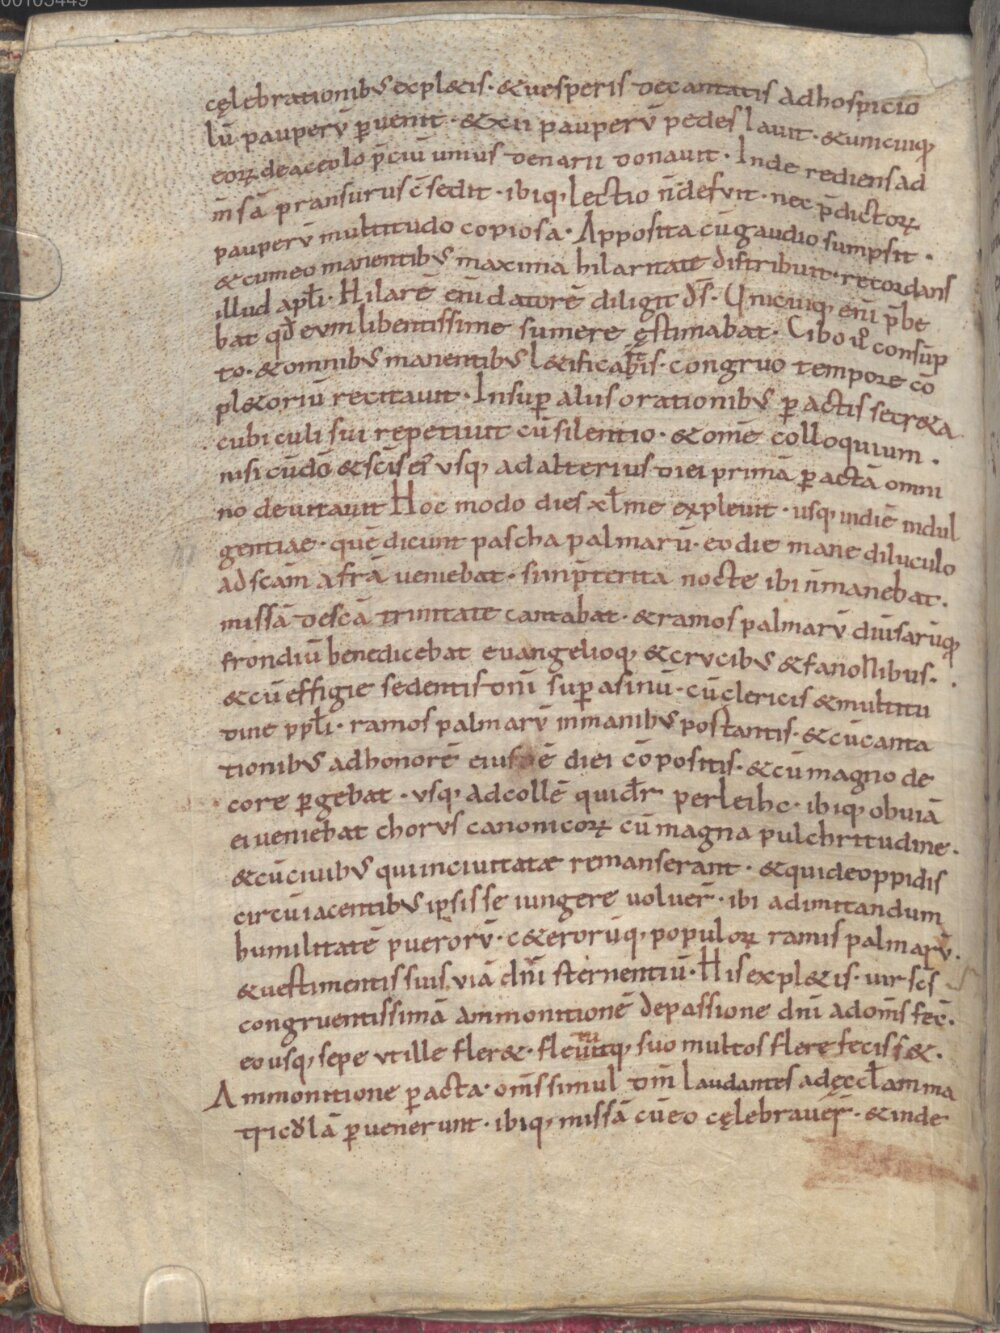 00105449
cęlebrationibꝰ expl&is · &uesperis decantatis adhospicio
lū pauperū ꝑuenit · &xii pauperū pedes lauit · &unicuiq;
eoꝝ deaceolo p̄ciū unius denarii donauit · Inde rediens ad
m̄sā pransurus c̄sedit · ibiq; lectio n̄defuit · nec p̄dictoꝝ
pauperū multitudo copiosa · Apposita cūgaudio sumpsit ·
&cumeo manentibꝰ maxima hilaritate distribuit · recordans
illud apłi · Hilarē enī datorē diligit d̄s · Unicuiq; enī p̄be
bat qd̄ eum libentissime sumere ęstimabat · Cibo u͛ consūp
to · &omnibꝰ manentibꝰ l&ificatis · congruo tempore cō
pl&oriū recitauit · Insuꝑ aliis orationibꝰ ꝑactis secr&a
cubiculi sui repetiuit cū silentio · &om̄e colloquium ·
nisi cūdō &sc̄is ei᾽ usq; ad alterius diei primā ꝑactā omni
no deuitauit Hoc modo dies xl̄me expleuit · usq; indiē indul
gentiae · quē dicunt pascha palmarū · eo die mane diluculo
ad sc̄am afrā ueniebat · sı inp̄terita nocte ibi n̄manebat ·
missā desc̄a trinitate cantabat · &ramos palmarū diūsarūq;
frondiū benedicebat euangelioq; &crucibꝰ &fanonibus ·
&cū effigie sedentis dn̄i suꝑ asinū · cūclericis &multitu
dine ppłi · ramos palmarū inmanibꝰ portantis · &cūcanta
tionibꝰ adhonorē eiusdē diei cōpositis · &cū magno de
core ꝑgebat · usq; adcollē quidr̄ perleihc · ibiq; obuiā
ei ueniebat chorus canonicoꝝ cū magna pulchritudine ·
&cūciuibꝰ qui inciuitatæ remanserant · &quideoppidis
circūiacentibꝰ ipsis se iungere uoluer̄ · ibi adimitandum
humilitatē puerorū · c&erorūq; populoꝝ ramis palmarū ·
&uestimentis suis uiā dn̄i sternentiū · His expl&is · uir sc̄s
congruentissimā ammonitionē depassione dn̄i adom̄s fec̄ ·
eousq; sepe utille fler& · fl&uq; suo multos flere fecisset ·
Ammonitione ꝑacta · om̄s simul dn̄m laudantes adęccl̄am ma
tricul̄ā ꝑuenerunt · ibiq; missā cūeo cęlebrauer̄ · &inde